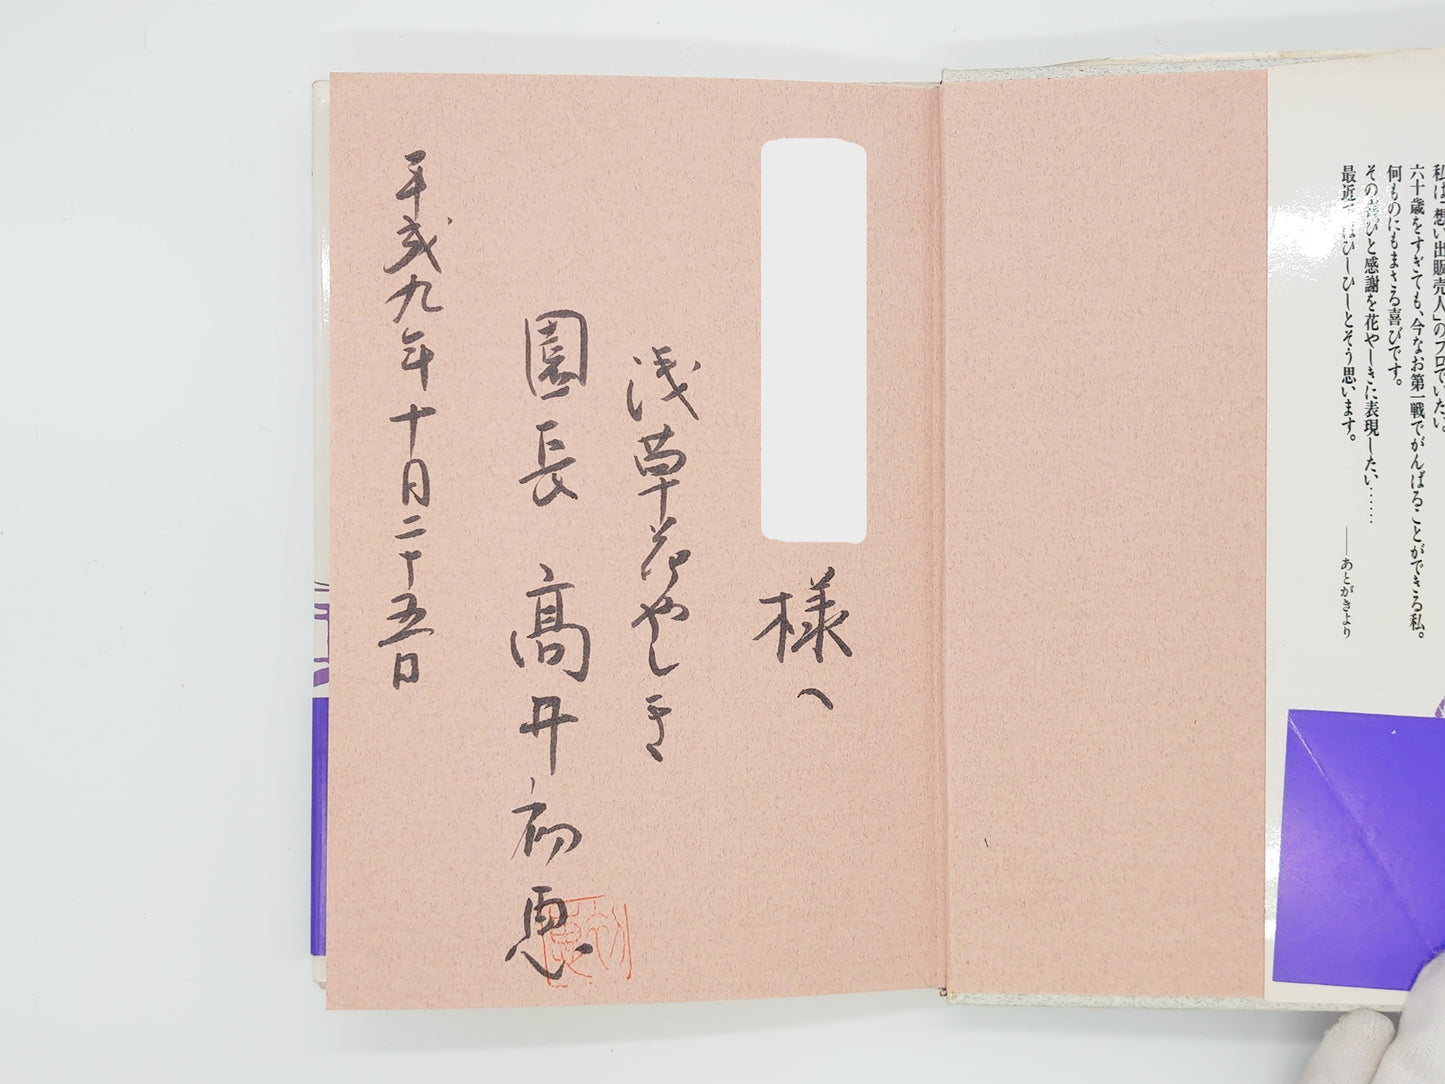 私は「想い出販売人」のプロでいたい。
六十歳をすぎても、今なお第一戦でがんばることができる私。
何ものにもまさる喜びです。
その喜びと感謝を花やしきに表現したい……
最近ではひしひしとそう思います。
——あとがきより
様へ
浅草花やしき
園長 髙井初恵
平成九年十月二十五日
初恵